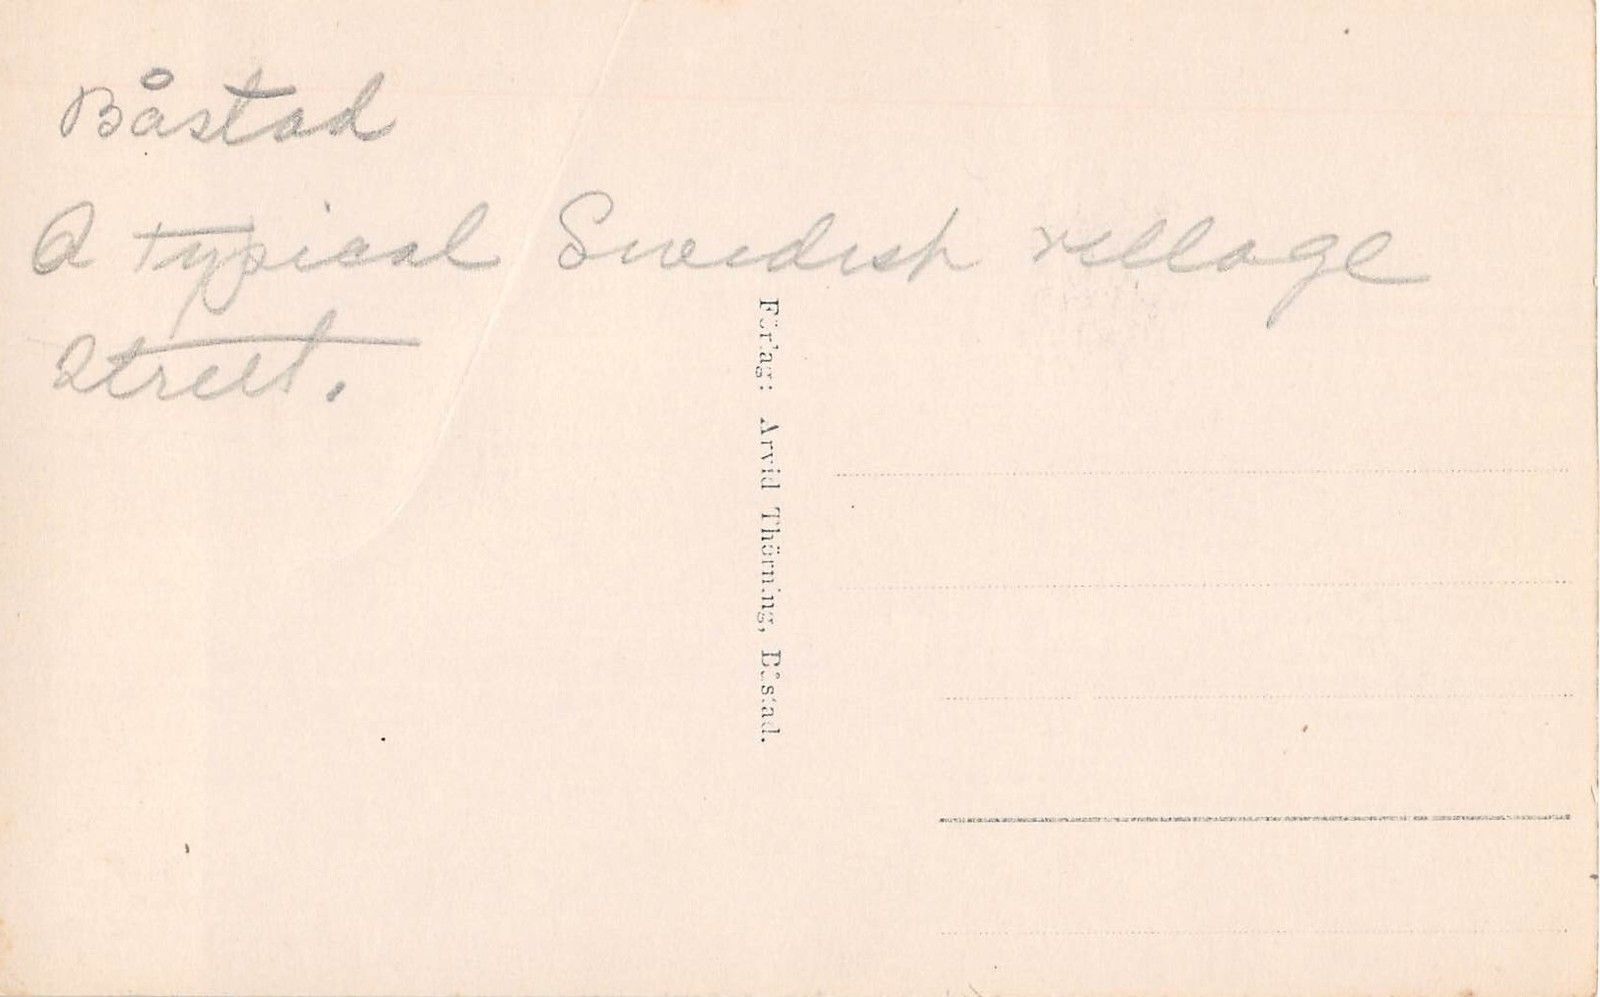 Båstad
A typical Swedish village
street.
Förlag: Arvid Thörning, Båstad.